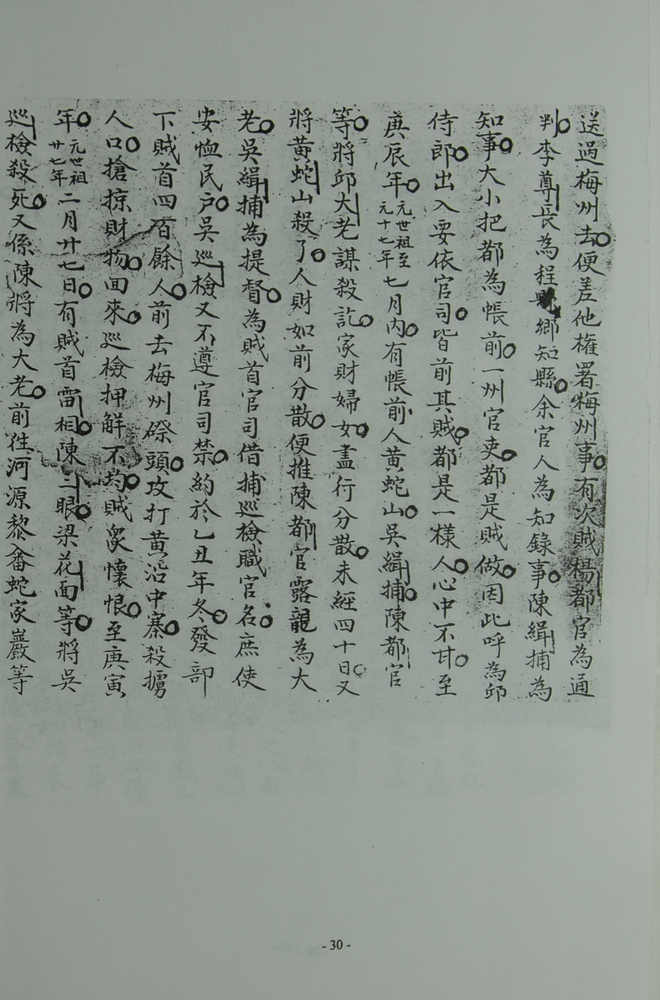 送過梅州去便差他權署梅州事有次賊楊都官為通
判李尊長為程鄉知縣余官人為知錄事陳緝捕為
知事大小把都為帳前一州官吏都是賊做因此呼為邱
侍郎出入要依官司皆前其賊都是一樣人心中不甘至
庚辰年元世祖至元十七年七月內有帳前人黃蛇山吳緝捕陳都官
等將邱大老謀殺訖家財婦女盡行分散未經四十日又
將黃蛇山殺了人財如前分散便推陳都官露親為大
老吳緝捕為提督為賊首官司借捕巡檢職官名庶使
安恤民戶吳巡檢又不遵官司禁約於乙丑年冬發部
下賊首四百餘人前去梅州磜頭攻打黃沿中寨殺擄
人口搶掠財物回來巡檢押解不均賊眾懷恨至庚寅
年元世祖廿七年二月廿七日有賊首雷相陳二眼梁花面等將吳
巡檢殺死又係陳將為大老前往河源黎畬蛇家巖等
- 30 -